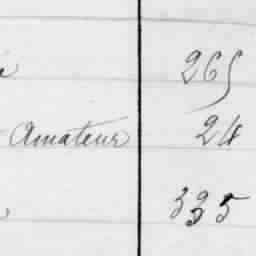 265
Amateur 24
335